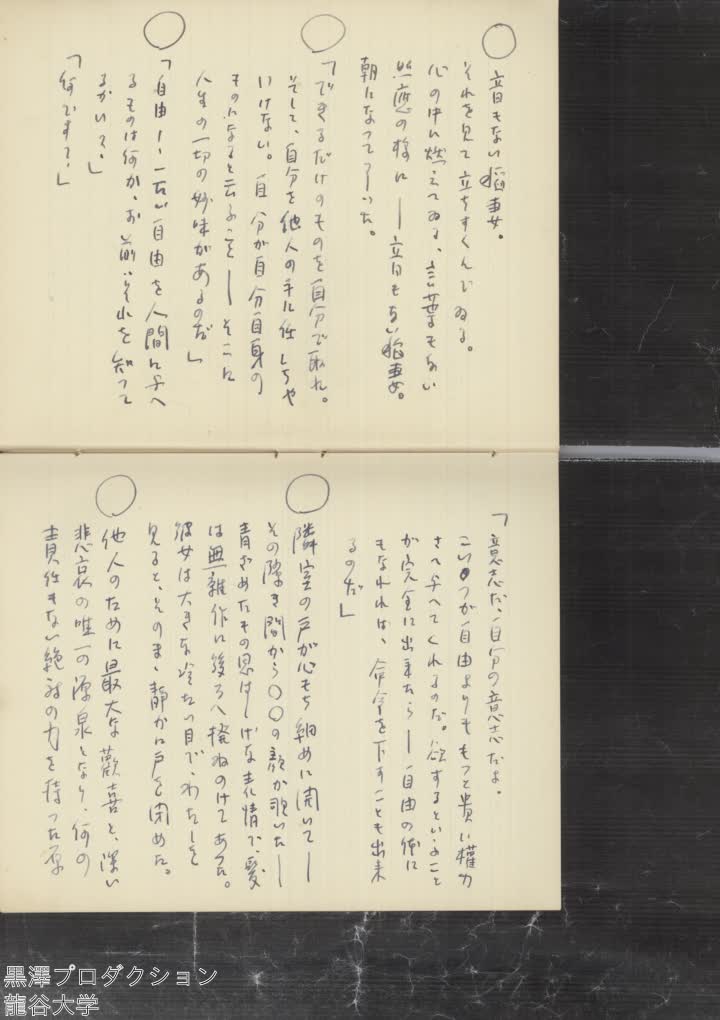 ○
音もない稲妻。
それを見て立ちすくんでゐる。
心の中に燃えてゐる、言葉もない
照應の様に——音もない稲妻。
朝になってしまった。
○
「できるだけのものを自分で取れ。
そして、自分を他人の手に任しちや
いけない。自分が自分自身の
ものになると云ふこと——そこに
人生の一切の妙味があるのだ」
○
「自由——一たい自由を人間に与へ
るものは何か、お前はそれを知って
るかい？」
「何です？」
「意志だ、自分の意志だよ。
こいつが自由よりももっと貴い權力
さへ与へてくれるのだ。欲するといふこと
が完全に出来たら——自由の他に
もなれれば、命令を下すことも出来
るのだ」
○
隣室の戸が心もち細めに開いて——
その隙き間から○○の顔が覗いた——
青ざめたもの思はしげな表情で、髪
は無雑作に後ろへ撥ねのけてあった。
彼女は大きな冷たい目で、わたしを
見ると、そのまゝ静かに戸を閉めた。
○
他人のために最大な歡喜と、深い
悲哀の唯一の源泉となり、何の
責任もない絶対の力を持った原
黒澤プロダクション
龍谷大学